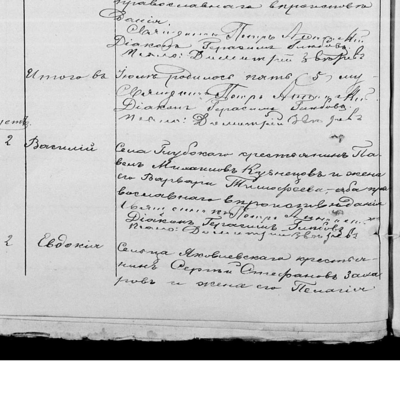 православнаго вероисповѣ
данія.
Священникъ Петръ
Діаконъ Герасимъ
Псалом: Димитрій
Итого въ Іюнѣ родилось пять (5) му-
Священникъ Петръ
Діаконъ Герасимъ
Псалом: Димитрій
2 Василій Села Глубокаго крестьянинъ Па-
велъ Кузнецовъ и жена
его Варвара Тимофеева, оба пра
вославнаго вѣроисповѣданія
Священникъ Петръ
Діаконъ Герасимъ
Псалом: Димитрій
2 Евдокія Сельца Яковлевскаго крестья-
нинъ Сергѣй Стефановъ Заха
ровъ и жена его Пелагія